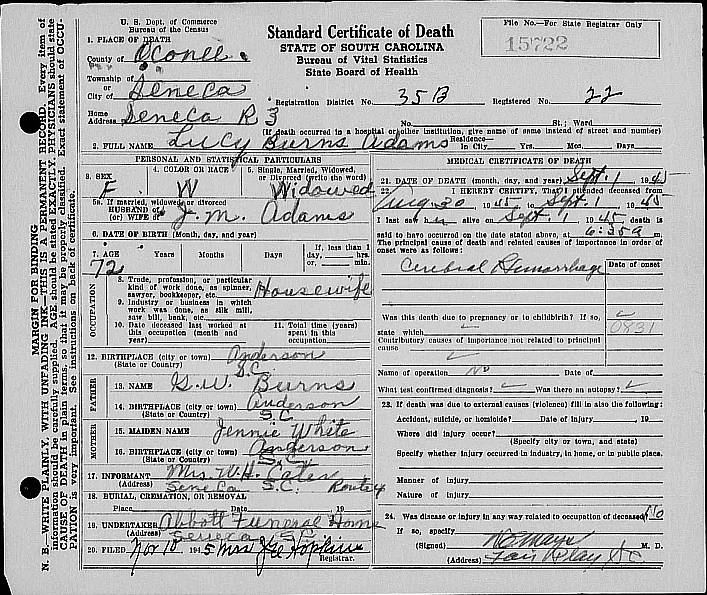 U. S. Dept. of Commerce
Bureau of the Census
Standard Certificate of Death
STATE OF SOUTH CAROLINA
Bureau of Vital Statistics
State Board of Health
File No.—For State Registrar Only
15722
1. PLACE OF DEATH
County of Oconee
Township of
or
City of Seneca
Registration District No. 35B Registered No. 22
Home Address Seneca R 3 No. St.; Ward
(If death occurred in a hospital or other institution, give name of same instead of street and number)
2. FULL NAME Lucy Burns Adams Residence— In City Yrs. Mos. Days
PERSONAL AND STATISTICAL PARTICULARS
3. SEX F 4. COLOR OR RACE W 5. Single, Married, Widowed, or Divorced (write the word) Widowed
5a. If married, widowed or divorced
HUSBAND of
(or) WIFE of J. M. Adams
6. DATE OF BIRTH (Month, day, and year)
7. AGE Years Months Days If, less than 1 day, hrs. or, min.
72
OCCUPATION
8. Trade, profession, or particular kind of work done, as spinner, sawyer, bookkeeper, etc. Housewife
9. Industry or business in which work was done, as silk mill, saw bill, bank, etc.
10. Date deceased last worked at this occupation (month and year)
11. Total time (years) spent in this occupation
12. BIRTHPLACE (city or town) Anderson
(State or Country) S.C.
FATHER
13. NAME G. W. Burns
14. BIRTHPLACE (city or town) Anderson
(State or Country) S.C.
MOTHER
15. MAIDEN NAME Jennie White
16. BIRTHPLACE (city or town) Anderson
(State or Country) S.C.
17. INFORMANT Mrs. W. H. Cater
(Address) Seneca S.C. Route 4
18. BURIAL, CREMATION, OR REMOVAL
Place Date 19
19. UNDERTAKER Abbott Funeral Home
(Address) Seneca S.C.
20. FILED Nov 10 1945 Mrs Hopkins
Registrar.
MEDICAL CERTIFICATE OF DEATH
21. DATE OF DEATH (month, day, and year) Sept. 1 1945
22. I HEREBY CERTIFY, That I attended deceased from
Aug. 30 1945 to Sept. 1 1945
I last saw her alive on Sept. 1 1945 death is
said to have occurred on the date stated above, at 6:35 a m.
The principal cause of death and related causes of importance in order of onset were as follows:
Date of onset
Cerebral Hemorrhage
Was this death due to pregnancy or to childbirth? If so,
state which
0831
Contributory causes of importance not related to principal cause
Name of operation No Date of
What test confirmed diagnosis? Was there an autopsy?
23. If death was due to external causes (violence) fill in also the following:
Accident, suicide, or homicide? Date of injury , 19
Where did injury occur?
(Specify city or town, and state)
Specify whether injury occurred in industry, in home, or in public place.
Manner of injury
Nature of injury
24. Was disease or injury in any way related to occupation of deceased No
If so, specify
(Signed) M. D.
(Address) Fair Play SC
MARGIN FOR BINDING
N. B.—WRITE PLAINLY, WITH UNFADING INK—THIS IS A PERMANENT RECORD. Every item of
information should be carefully supplied. AGE should be stated EXACTLY. PHYSICIANS should state
CAUSE OF DEATH in plain terms, so that it may be properly classified. Exact statement of OCCU-
PATION is very important. See instructions on back of certificate.